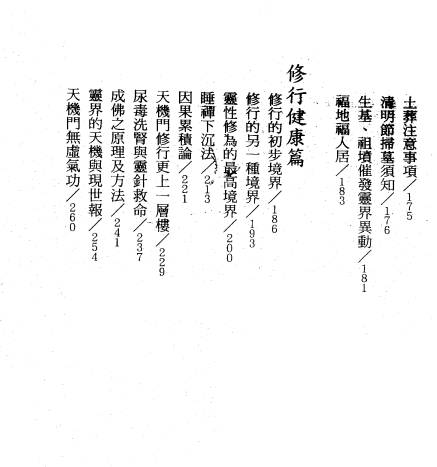 土葬注意事項／175
清明節掃墓須知／176
生基、祖墳催發靈界異動／181
福地福人居／183
修行健康篇
修行的初步境界／186
修行的另一種境界／193
靈性修為的最高境界／200
睡禪下沉法／213
因果累積論／221
天機門修行更上一層樓／229
尿毒洗腎與靈針救命／237
成佛之原理及方法／241
靈界的天機與現世報／254
天機門無虛氣功／260